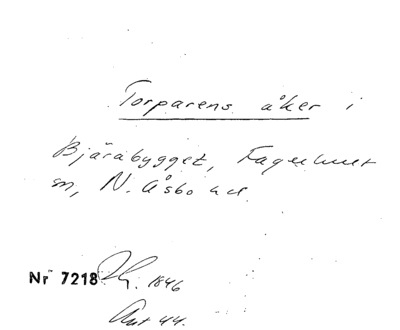 Torparens åker i
Bjärabygget, Fagerhult
sn, N. Åsbo hd.
Nr 7218 1846
Ant 44.